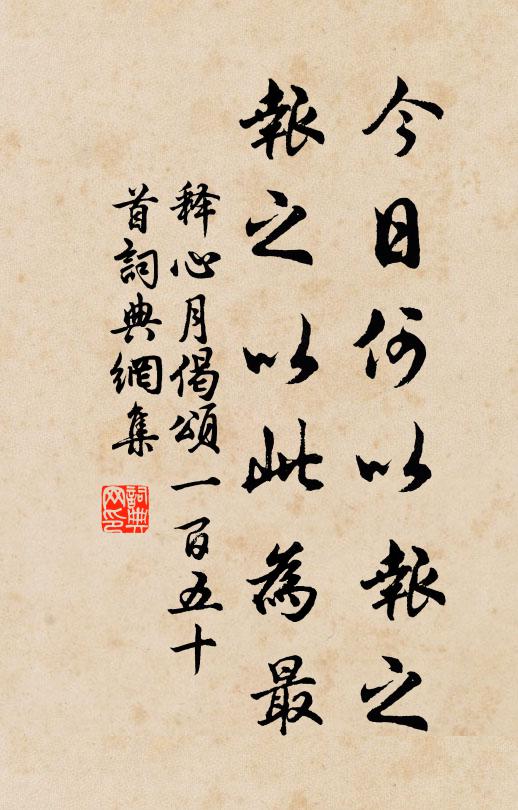 今日何以報之
報之以此為最
释心月偈頌一百五十
首詞典網集
詞典网印